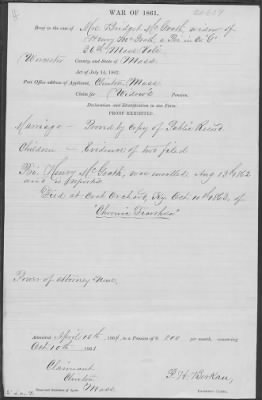 WAR OF 1861.
Brief in the case of Mrs Bridget McGrath, widow of
Henry McGrath, a Pri in Co "C"
36th Mass Vols
Worcester County and State of Mass.
Act of July 14, 1862.
Post Office address of Applicant, Clinton, Mass
Claim for Widow's Pension.
Declaration and Identification in due Form.
PROOF EXHIBITED.
Marriage - Proved by Copy of Public Record
Children - Evidence of two filed
Pri. Henry McGrath, was enrolled Aug 13th 1862
and is reported
Died at Crab Orchard, Ky. Oct. 10th 1863, of
"Chronic Diarrhea"
Power of attorney None.
Admitted April 10th 1864, to a Pension of $ 8 00 per month, commencing
Oct. 10th 1863.
Claimant
Clinton
Mass
Examining Clerk.